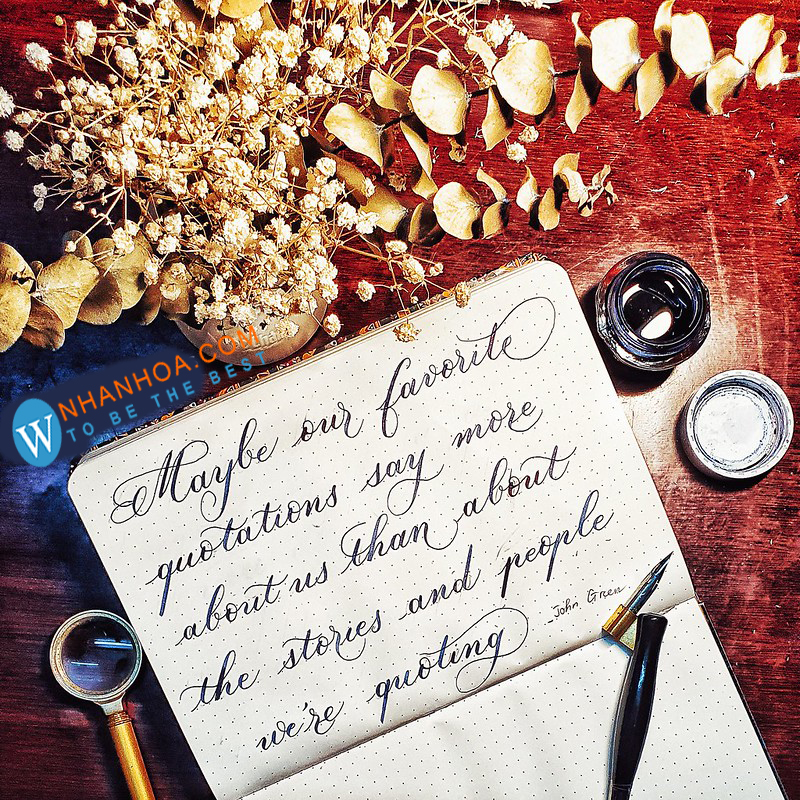 NHANHOA.COM
TO BE THE BEST
W
Maybe our favorite
quotations say more
about us than about
the stories and people
we're quoting
-John Green